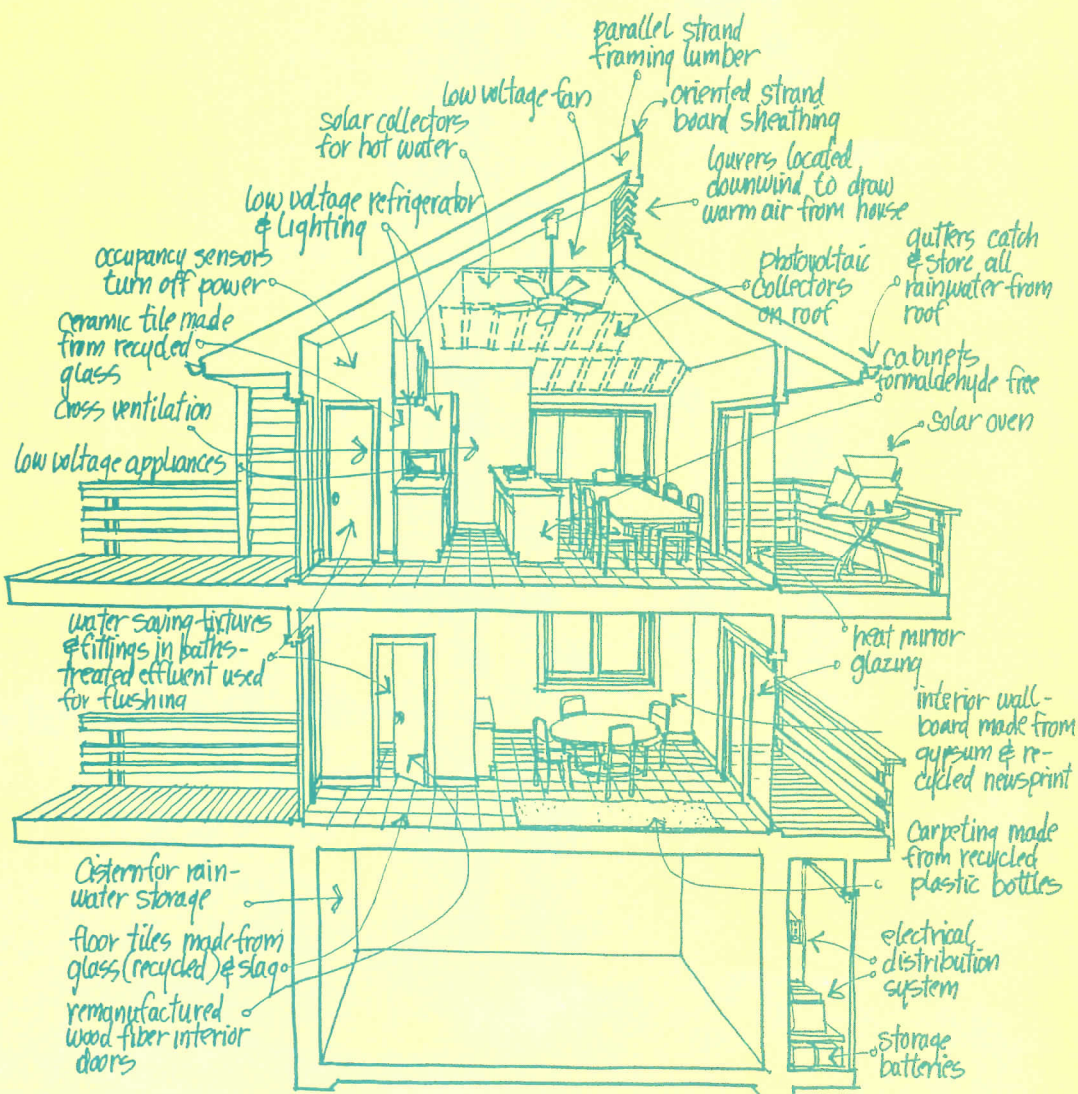 parallel strand
framing lumber
low voltage fan
oriented strand
board sheathing
solar collectors
for hot water
louvers located
downwind to draw
warm air from house
low voltage refrigerator
& lighting
gutters catch
& store all
rainwater from
roof
occupancy sensors
turn off power
photovoltaic
collectors
on roof
ceramic tile made
from recycled
glass
cabinets
formaldehyde free
cross ventilation
solar oven
low voltage appliances
water saving fixtures
& fittings in baths-
treated effluent used
for flushing
heat mirror
glazing
interior wall-
board made from
gypsum & re-
cycled newsprint
Carpeting made
from recycled
plastic bottles
Cistern for rain-
water storage
floor tiles made from
glass (recycled) & slag
electrical
distribution
system
remanufactured
wood fiber interior
doors
storage
batteries